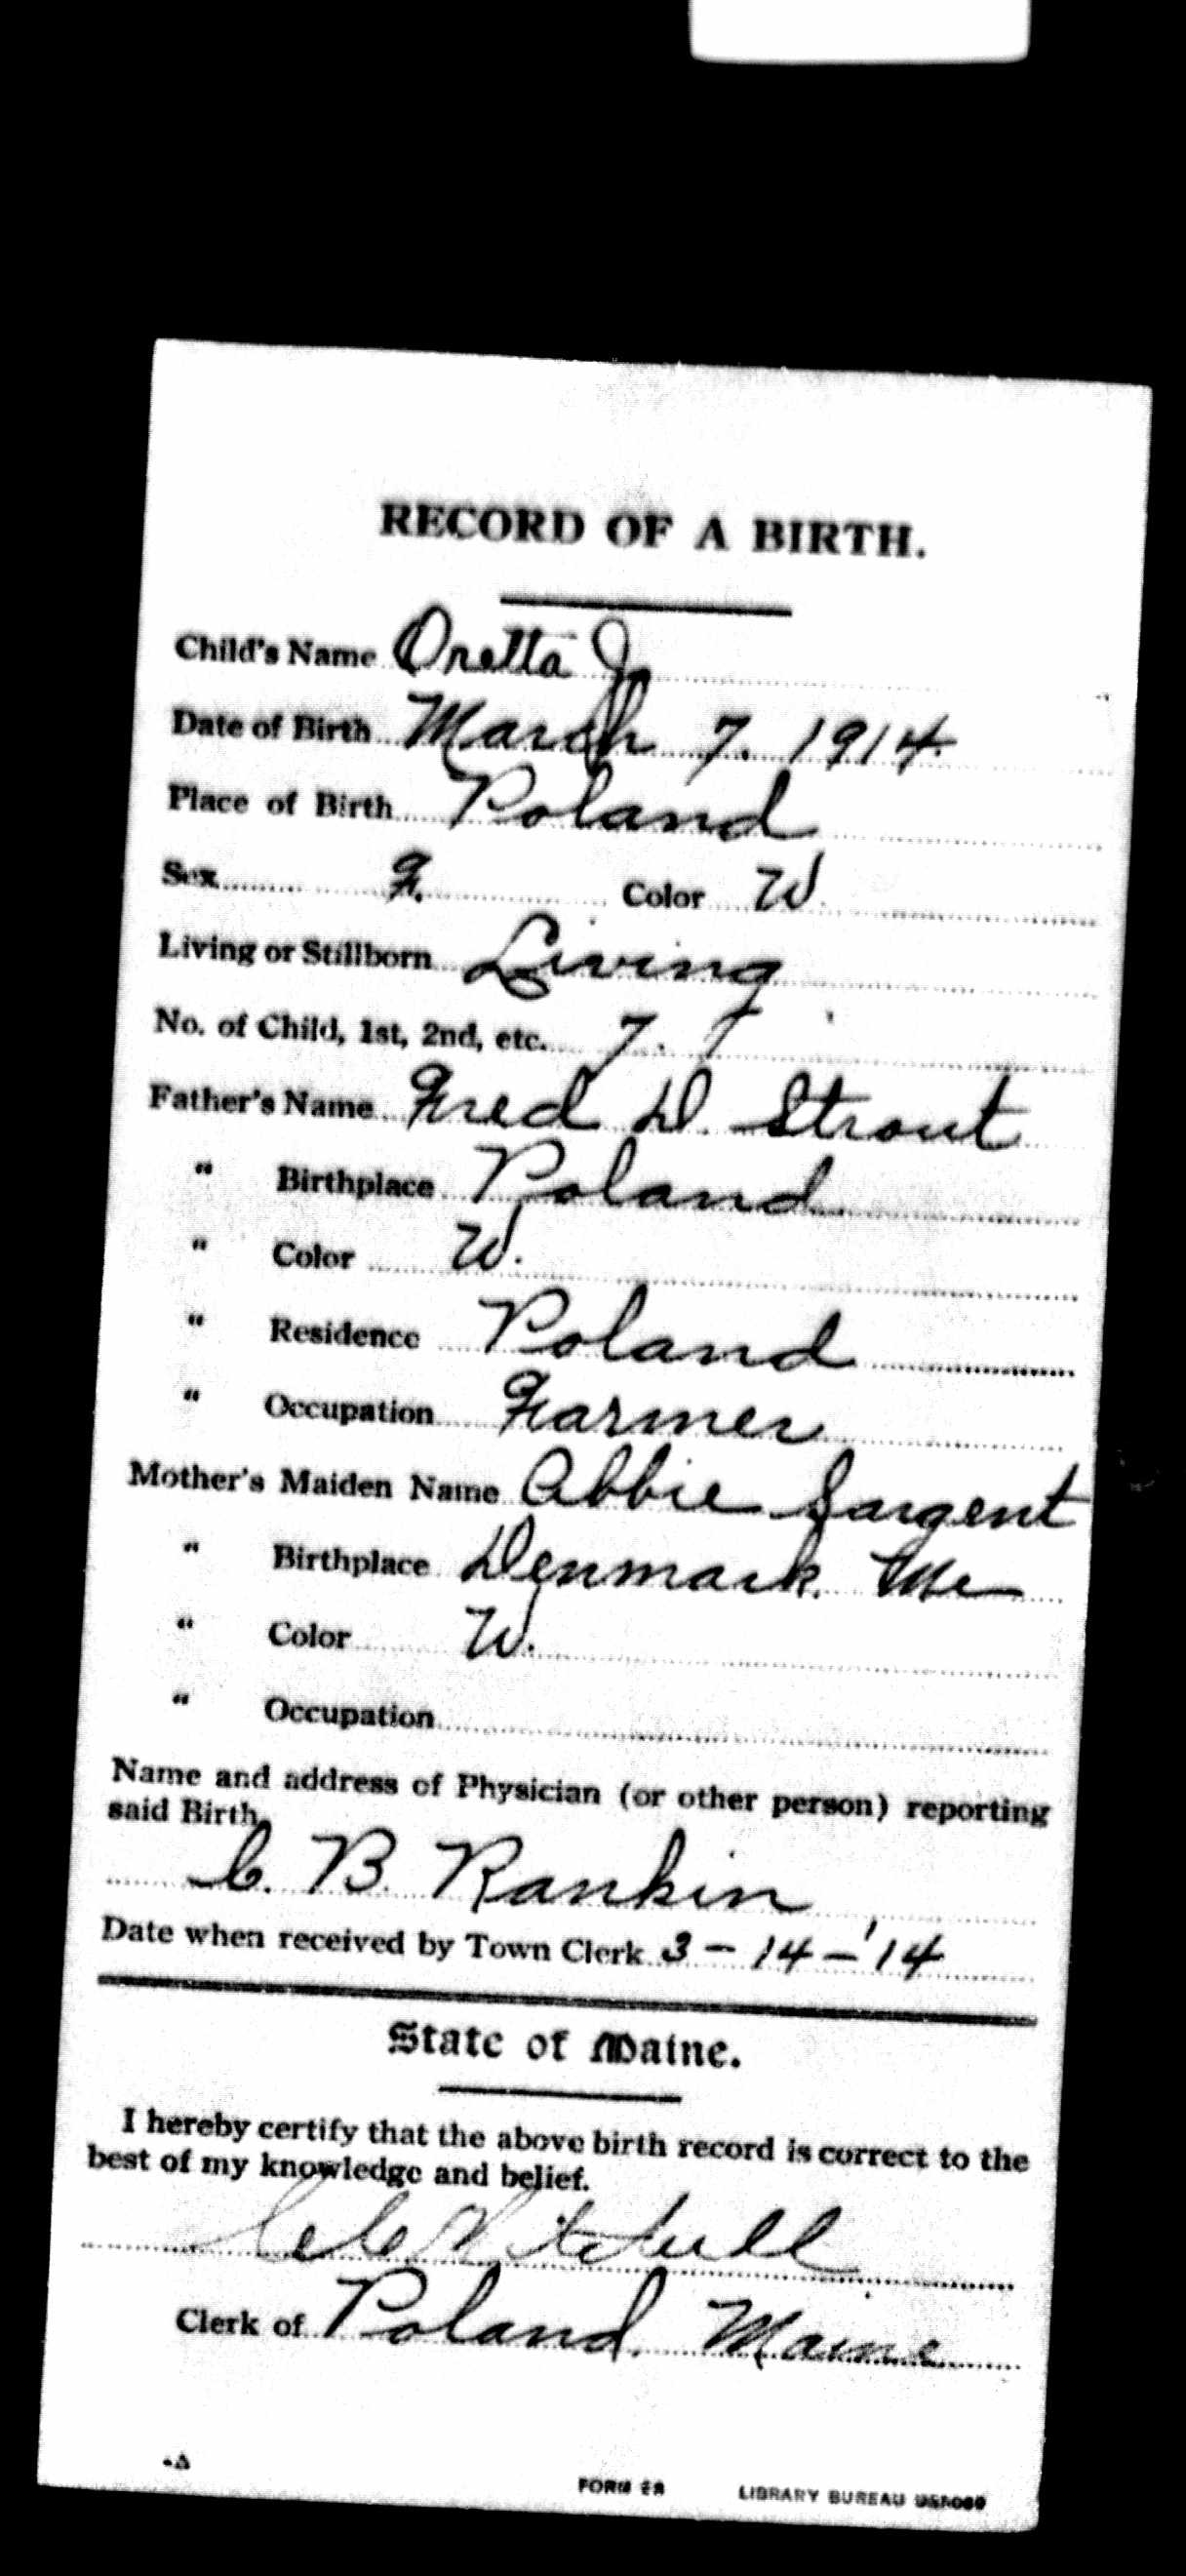 RECORD OF A BIRTH.
Child's Name Onetta J.
Date of Birth March 7. 1914.
Place of Birth Poland
Sex F. Color W.
Living or Stillborn Living
No. of Child, 1st, 2nd, etc. 7.
Father's Name Fred D. Strout
" Birthplace Poland
" Color W.
" Residence Poland
" Occupation Farmer
Mother's Maiden Name Abbie Sargent
" Birthplace Denmark. Me
" Color W.
" Occupation
Name and address of Physician (or other person) reporting
said Birth,
C. B. Rankin
Date when received by Town Clerk 3-14-'14
State of Maine.
I hereby certify that the above birth record is correct to the
best of my knowledge and belief.
Clerk of Poland. Maine
FORM
LIBRARY BUREAU